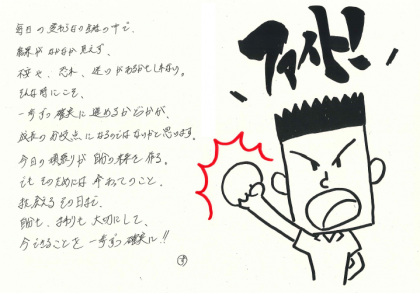 毎日の変わらない生活の中で、
結果がなかなか見えず、
不安や、恐れ、迷いがあるかもしれない。
そんな時にこそ、
一歩ずつ確実に進めるかどうかが、
成長の分岐点になるのではないかと思います。
今日の積重りが 自分の体を作る。
でも そのためには 休むってのこと、
支える その日まで、
自分も、まわりも 大切にして、
今できることを 一歩ずつ確実に!!
ファイト!